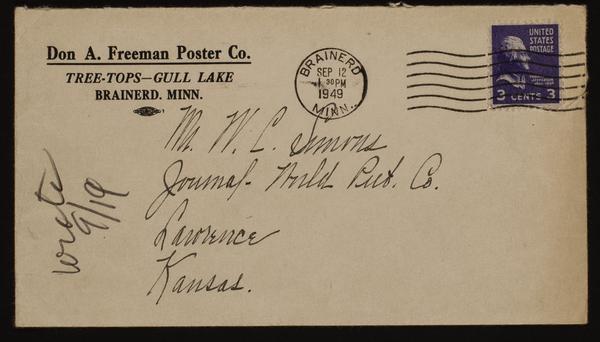 Don A. Freeman Poster Co.
TREE-TOPS—GULL LAKE
BRAINERD. MINN.
BRAINERD
SEP 12
1 30 PM
1949
MINN.
UNITED
STATES
POSTAGE
3 CENTS 3
Mr. W. C. Simons
Journal-World Pub. Co.
Lawrence
Kansas.
wrote
9/19